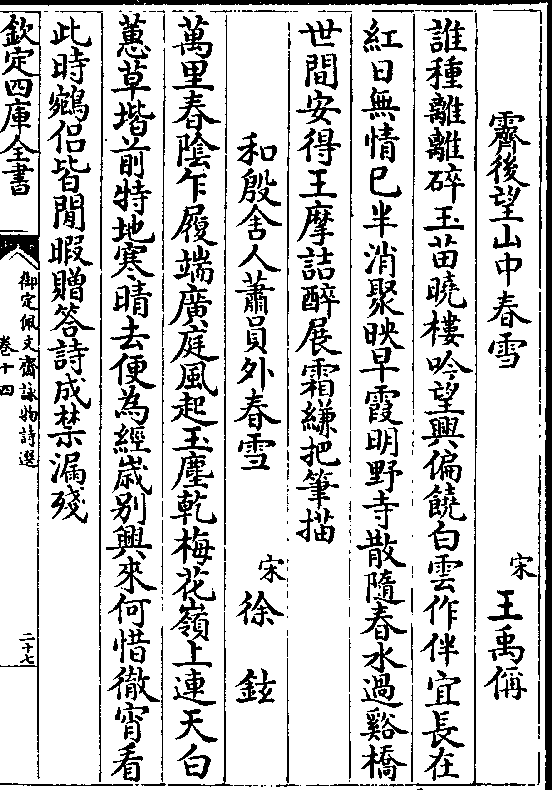 霽後望山中春雪
宋 王禹偁
誰種離離碎玉苗曉樓吟望興偏饒白雲作伴宜長在
紅日無情已半消聚映早霞明野寺散隨春水過谿橋
世間安得王摩詰醉展霜縑把筆描
和殷舍人蕭員外春雪
宋 徐鉉
萬里春陰乍履端廣庭風起玉塵乾梅花嶺上連天白
蕙草堦前特地寒晴去便為經歲别興來何惜徹宵看
此時鵷侣皆閒暇贈答詩成禁漏殘
欽定四庫全書
御定佩文齋詠物詩選
卷十四
二十七